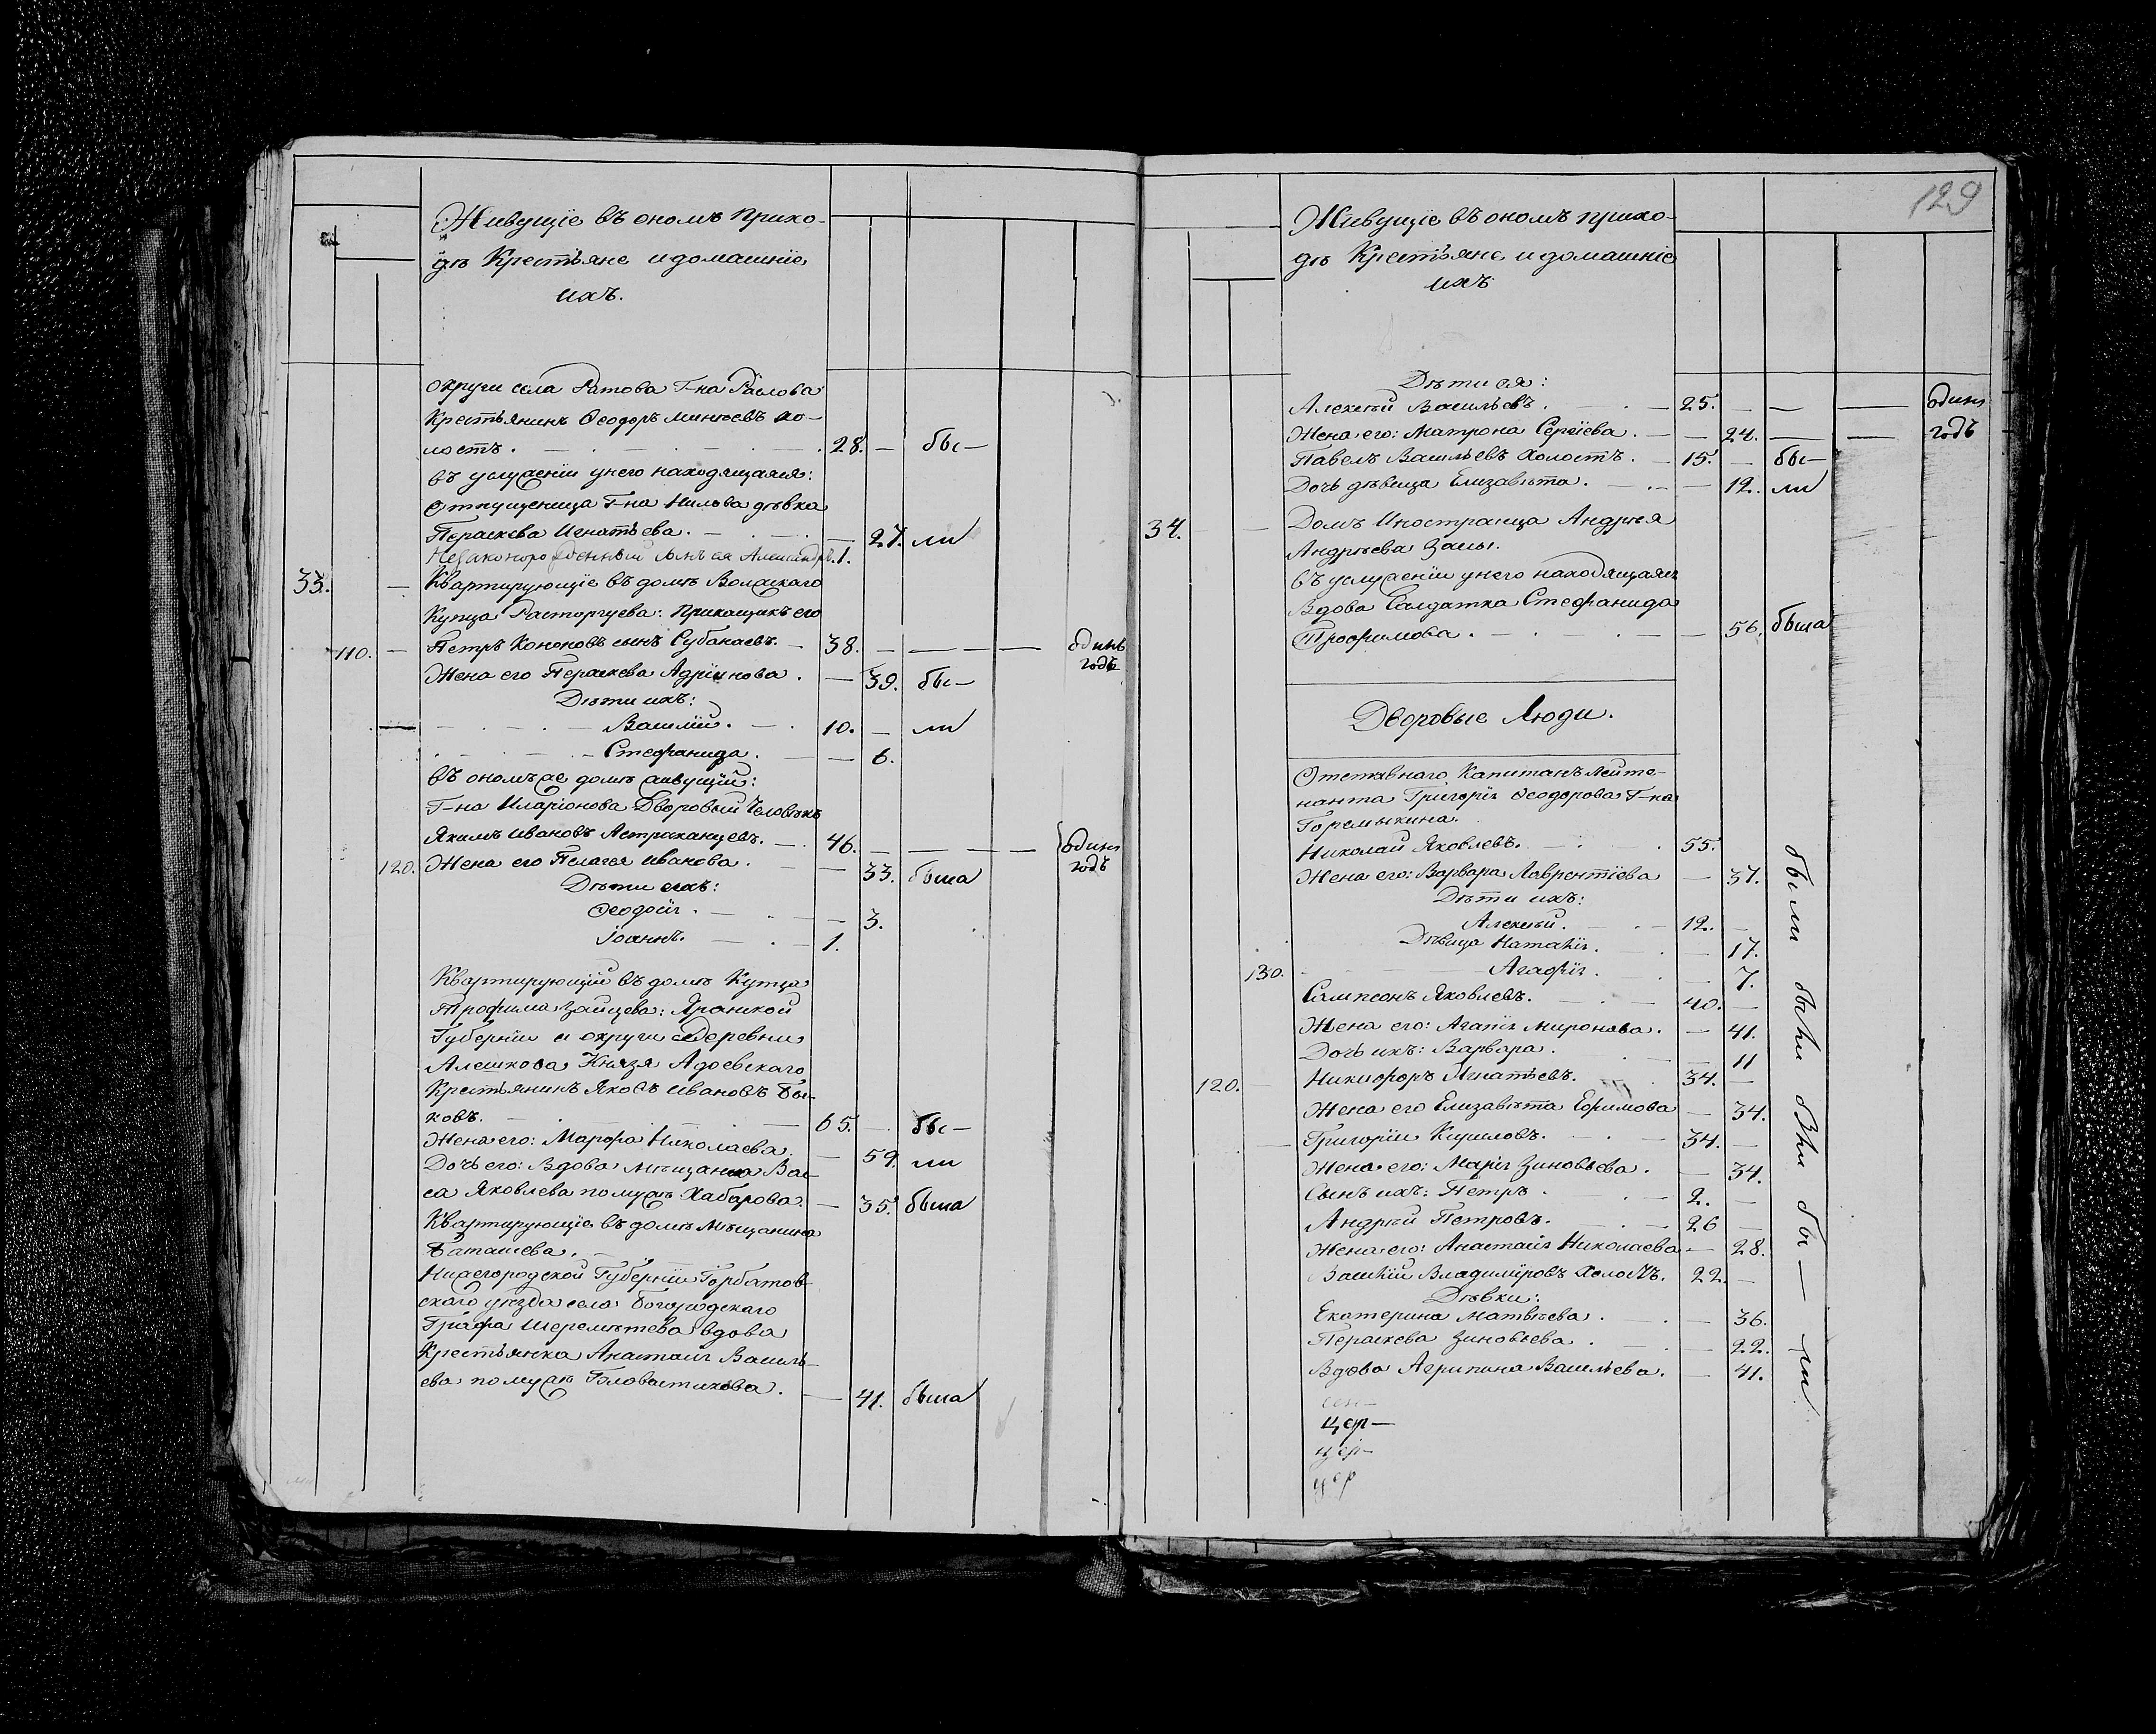 Живущіе въ ономъ прихо-
дѣ Крестьяне и домашніе
ихъ.
округи села Ратова Г-на
Крестьянинъ Ѳеодоръ Минѣевъ хо-
лостъ. 28. — бы-
въ услуженіи у него находящаяся:
Отпущеница Г-на Нилова дѣвка
Параскева Игнатьева. — 27. ли
Незаконорожденный сынъ ея Александръ. 1.
33. — Квартирующіе въ домѣ Волжскаго
Купца Расторгуева: Прикащикъ его
110. — Петръ Кононовъ сынъ Субакаевъ. — 38. — — — — одинъ
годъ
Жена его Параскева Адріянова. — 39. бы-
Дѣти ихъ:
Василій. — 10. — ли
Стефанида. — 6.
въ ономъ же домѣ живущій:
Г-на Иларіонова Дворовый Человѣкъ
Якимъ Ивановъ Астраханцевъ. — 46. — — — — одинъ
годъ
120. Жена его Пелагея Иванова. — 33. была
Дѣти ихъ:
Ѳеодосія. — 3.
Іоаннъ. — 1.
Квартирующій въ домѣ Купца
Трофима Зайцева: Яранской
Губерніи и округи Деревни
Алешкова Князя Адоевскаго
Крестьянинъ Яковъ Ивановъ Бы-
ковъ. — 65. — бы-
Жена его: Марфа Николаева. — 59. ли
Дочь его: Вдова Мѣщанка Вас-
са Яковлева по мужѣ Хабарова. — 35. была
Квартирующіе въ домѣ Мѣщанина
Баташева.
Нижегородской Губерніи Горбатов-
скаго уѣзда села Богородскаго
Графа Шереметева вдова
Крестьянка Анастасія Василь-
ева по мужѣ Головастикова. — 41. была
129
Живущіе въ ономъ прихо-
дѣ Крестьяне и домашніе
ихъ
Дѣти ея:
Алексѣй Васильевъ. — 25. — — — одинъ
Жена его: Матрона Сергіева. — — 24. — — годъ
Павелъ Васильевъ холостъ. — 15. — бы-
Дочь дѣвица Елизавѣта. — — 12. ли
34. — Домъ Иностранца Андрея
Андреева
въ услуженіи у него находящаяся
Вдова Салдатка Стефанида
Трофимова. — — 56. была
Дворовые Люди.
Отставнаго Капитанъ Лейте-
нанта Григорія Ѳеодорова Г-на
Горемыкина.
Николай Яковлевъ. 55.
Жена его: Варвара Лаврентіева — 37.
Дѣти ихъ:
Алексѣй. — 12. —
Дѣвица Наталія. — 17.
130. Агафія. — 7.
Сампсонъ Яковлевъ. — 40. —
Жена его: Агапія Миронова. — 41.
Дочь ихъ: Варвара. — 11
120. — Никифоръ Игнатьевъ. 34. —
Жена его Елизавѣта Ефимова — 34.
— Григорій Кириловъ. — 34. —
Жена его: Марія Зиновьева. — 34.
Сынъ ихъ: Петръ. — 2. —
Андрей Петровъ. — 26 —
Жена его: Анастасія Николаева — 28.
Василій Владиміровъ холостъ. 22. —
Дѣвки:
Екатерина Матвѣева. — 36.
Параскева Зиновьева. — 22.
Вдова Агрипина Васильева. — 41.
цер-
цер-
цер
были
бы — ли